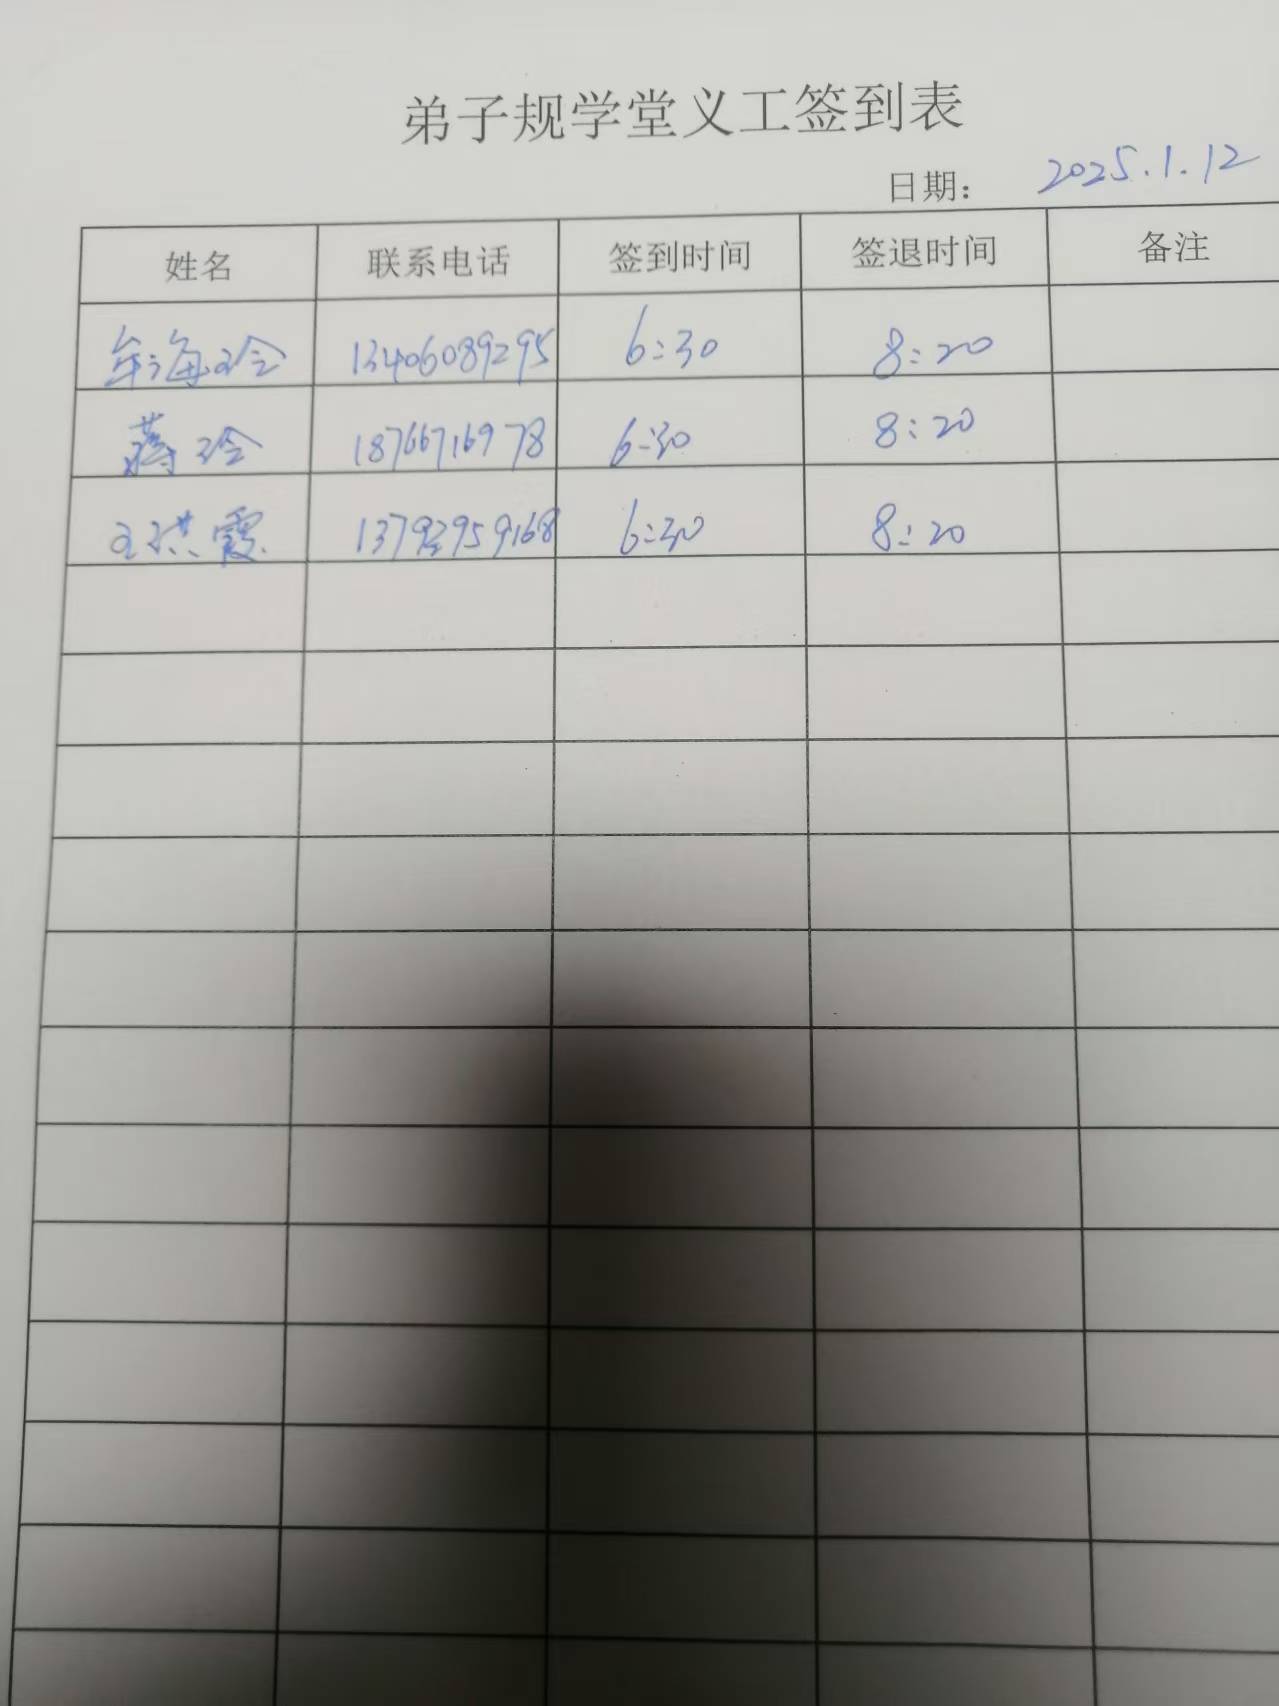 弟子规学堂义工签到表
日期： 2025.1.12
姓名 联系电话 签到时间 签退时间 备注
牟海玲 13406089295 6:30 8:20
蒋玲 18766716978 6:30 8:20
王洪霞 13792959168 6:30 8:20